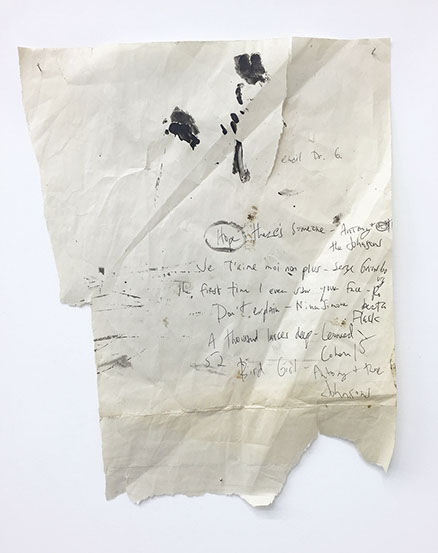 email Dr. G.
Hope there's someone - Antony +
the Johnsons
Je T'aime moi non plus - Serge
The first time I ever saw your face - Ro
berta
Don't explain Nina Simone Flack
A thousand kisses deep - Leonard
Cohen
Bird Girl - Antony + the
Johnsons